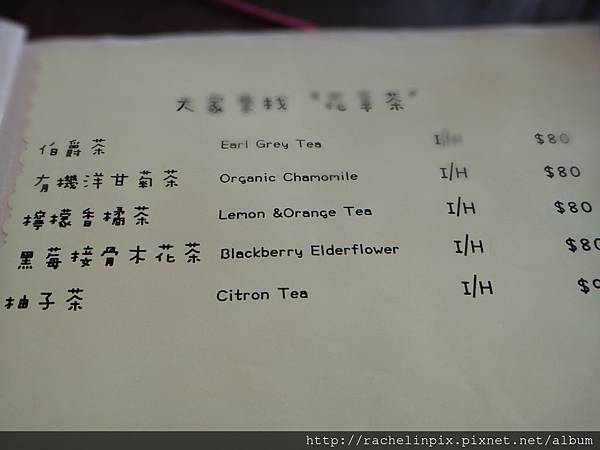 大家來找 "花草茶"
伯爵茶 Earl Grey Tea I/H $80
有機洋甘菊茶 Organic Chamomile I/H $80
檸檬香橘茶 Lemon &Orange Tea I/H $80
黑莓接骨木花茶 Blackberry Elderflower I/H $80
柚子茶 Citron Tea I/H $9
http://rachelinpix.pixnet.net/album